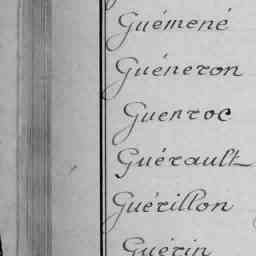 Guémené
Guéneron
Guenroc
Guérault
Guérillon
Guérin